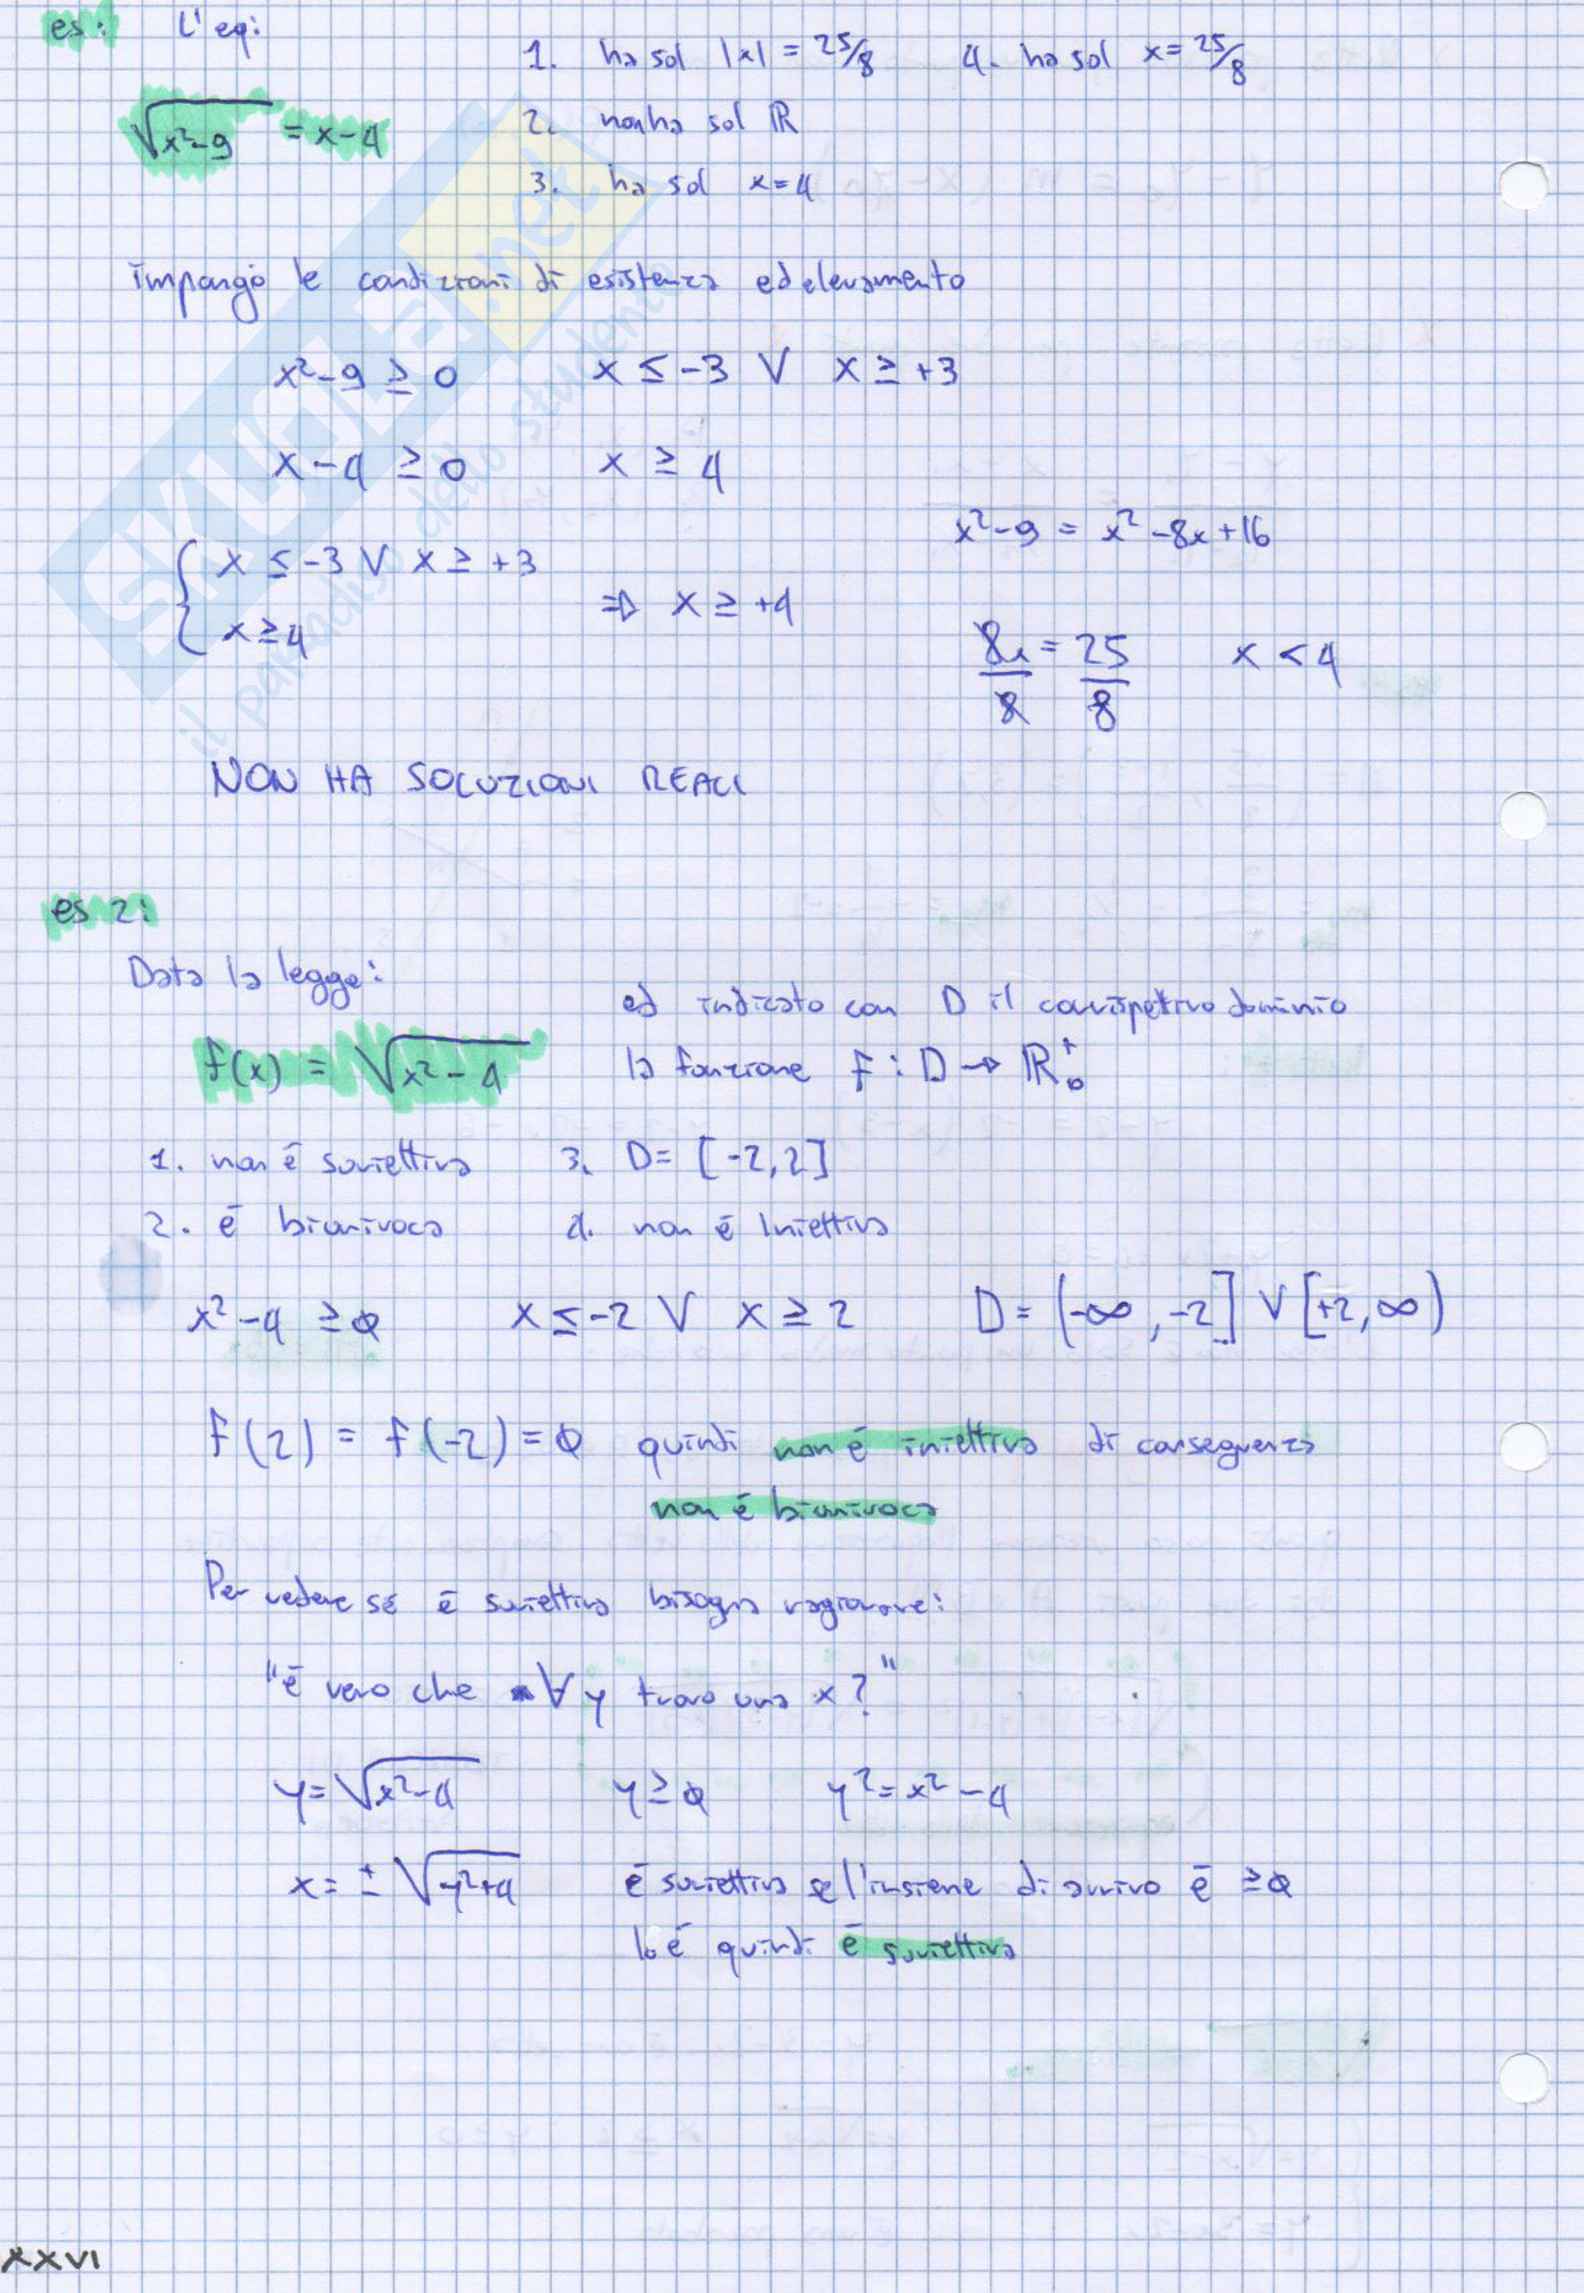 es: L'eq:
√x²-9 = x-4
1. ha sol |x| = 25/8
2. non ha sol ℝ
3. ha sol x=4
4. ha sol x=25/8
Impongo le condizioni di esistenza ed elevamento
x²-9 ≥ 0 x ≤ -3 ∨ x ≥ +3
x-4 ≥ 0 x ≥ 4
{ x ≤ -3 ∨ x ≥ +3
x ≥ 4
⇒ x ≥ +4
x²-9 = x²-8x+16
8x/8 = 25/8 x < 4
NON HA SOLUZIONI REALI
es 2:
Data la legge:
f(x) = √x²-4
ed indicato con D il corrispettivo dominio
la funzione f: D → ℝ₀⁺
1. non è suriettiva
2. è biunivoca
3. D= [-2,2]
4. non è Iniettiva
x²-4 ≥ 0 x ≤ -2 ∨ x ≥ 2 D = (-∞, -2] ∨ [+2, ∞)
f(2) = f(-2) = 0 quindi non è iniettiva di conseguenza
non è biunivoca
Per vedere se è suriettiva bisogna ragionare:
"è vero che ∀ y trovo una x?"
y = √x²-4 y ≥ 0 y² = x²-4
x = ± √y²+4 è suriettiva se l'insieme di arrivo è ≥ 0
lo è quindi è suriettiva
XXVI
SKUOLA.net
il paradiso dello studente